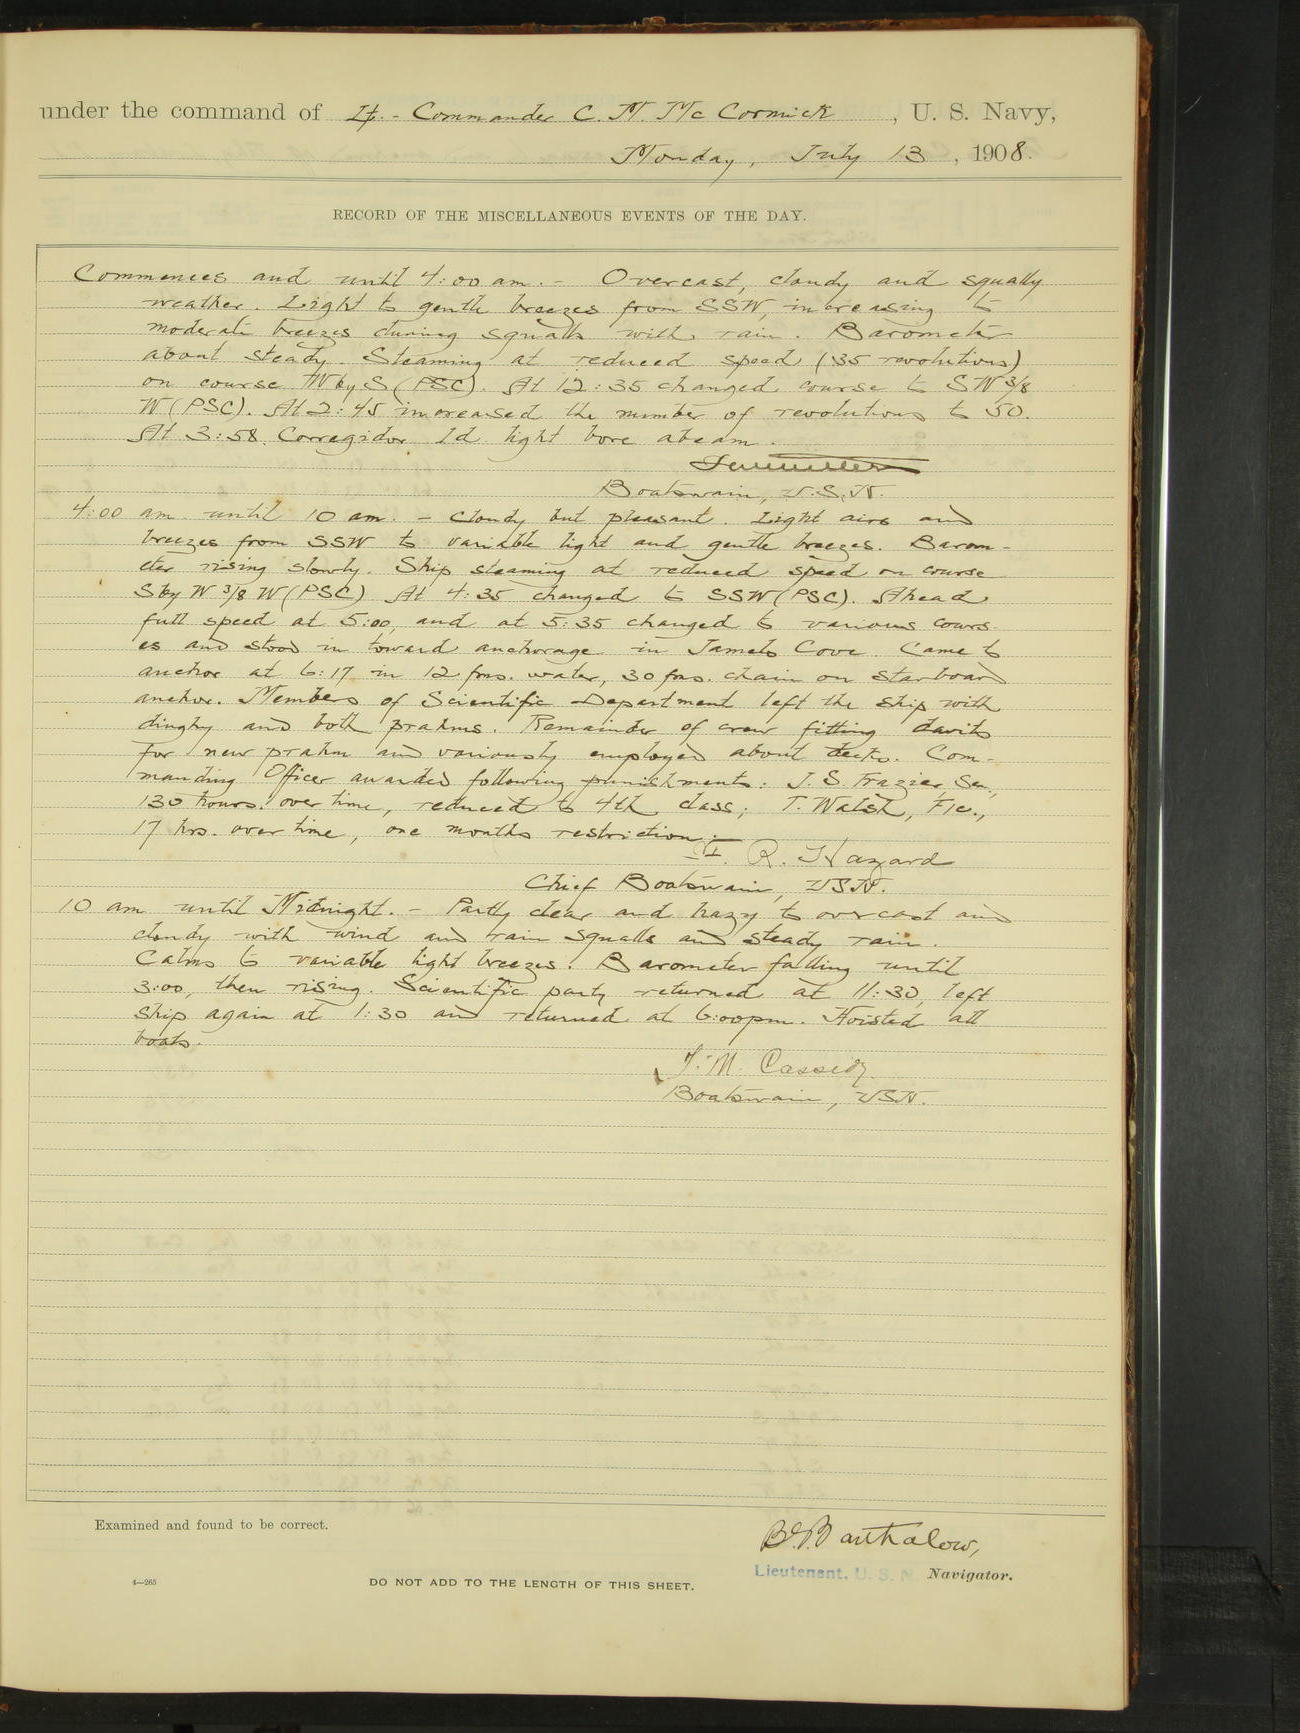 under the command of Lt.- Commander C. M. McCormick, U. S. Navy,
Monday, July 13, 1908.
RECORD OF THE MISCELLANEOUS EVENTS OF THE DAY.
Commences and until 4:00 am. - Overcast, cloudy and squally
weather. Light to gentle breezes from SSW, increasing to
moderate breezes during squalls with rain. Barometer
about steady. Steaming at reduced speed (35 revolutions)
on course W by S (PSC). At 12:35 changed course to SW 3/8
W (PSC). At 2:45 increased the number of revolutions to 50.
At 3:58 Corregidor Id. light bore abeam.
Boatswain, U.S.N.
4:00 am until 10 am. - Cloudy but pleasant. Light airs and
breezes from SSW to variable light and gentle breezes. Barom-
eter rising slowly. Ship steaming at reduced speed on course
S by W 3/8 W (PSC) At 4:35 changed to SSW (PSC). Ahead
full speed at 5:00, and at 5:35 changed to various cours-
es and stood in toward anchorage in Jamelo Cove. Came to
anchor at 6:17 in 12 fms. water, 30 fms. chain on starboard
anchor. Members of Scientific Department left the ship with
dinghy and both prahms. Remainder of crew fitting davits
for new prahm and variously employed about decks. Com-
manding Officer awarded following punishments: J. S. Frazier, Sea.,
130 hours over time, reduced to 4th class; T. Walsh, F1c.,
17 hrs. over time, one months restriction.
R. Hazard
Chief Boatswain, USN.
10 am until Midnight. - Partly clear and hazy to overcast and
cloudy with wind and rain squalls and steady rain.
Calms to variable light breezes. Barometer falling until
3:00, then rising. Scientific party returned at 11:30, left
ship again at 1:30 and returned at 6:00 pm. Hoisted all
boats.
J. M. Cassidy
Boatswain, USN.
Examined and found to be correct.
Barthalow,
Lieutenant, U. S. N. Navigator.
4—265
DO NOT ADD TO THE LENGTH OF THIS SHEET.